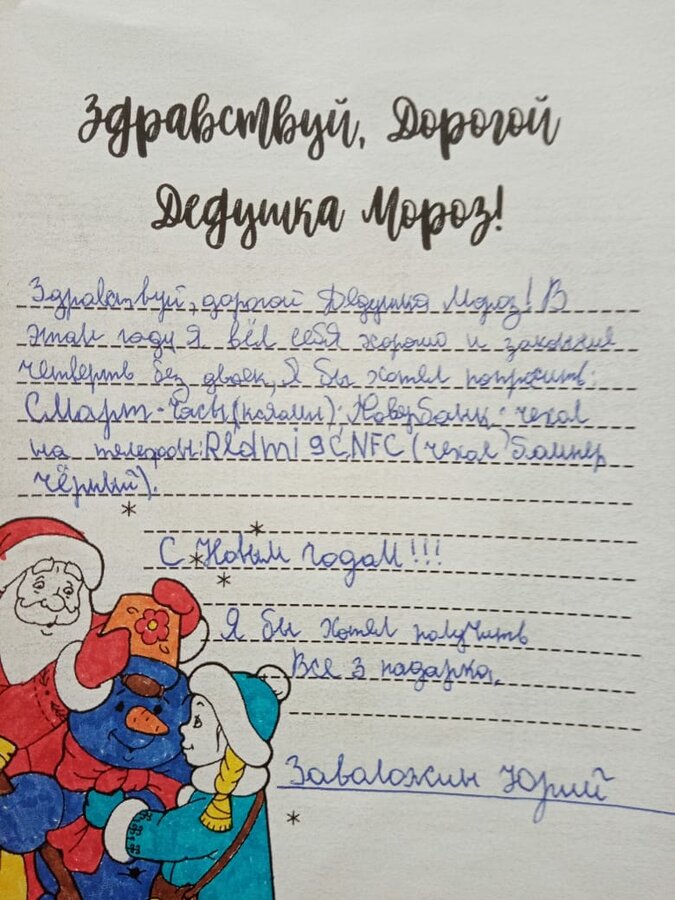 Здравствуй, Дорогой
Дедушка Мороз!
Здравствуй, дорогой Дедушка Мороз! В
этом году я вёл себя хорошо и закончил
четверть без двоек, Я бы хотел попросить:
СМарт-часы (ксяоми), Повербанк; чехол
на телефоны: Redmi 9C NFC (чехол бампер
чёрный).
С Новым годом!!!
Я бы хотел получить
Все 3 подарка.
Заваложин Юрий